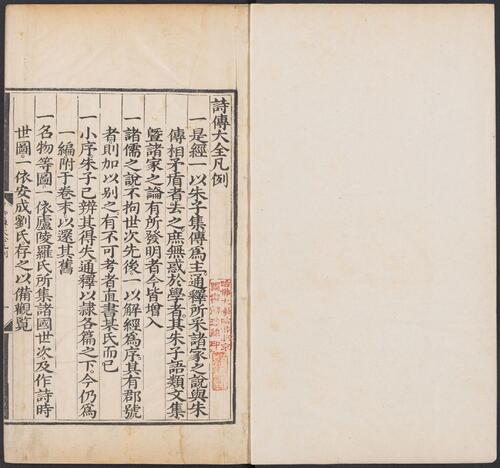 詩傳大全凡例
一是經一以朱子集傳為主通釋所采諸家之說與朱
傳相矛盾者去之庶無惑於學者其朱子語類文集
曁諸家之論有所發明者今皆增入
一諸儒之說不拘世次先後一以解經為序其有郡號
者則加以别之有不可考者直書某氏而已
一小序朱子已辨其得失通釋以隷各篇之下今仍為
一編附于卷末以還其舊
一名物等圖一依廬陵羅氏所集諸國世次及作詩時
世圖一依安成劉氏存之以備觀覽